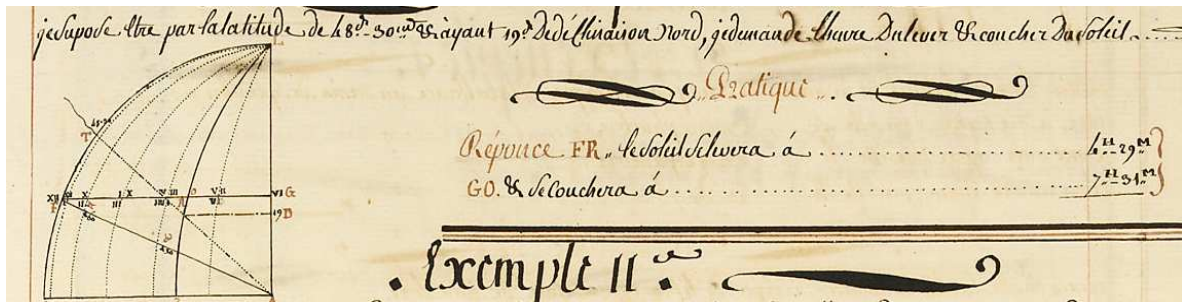 je supose être par la latitude de 48.d 30.m & ayant 19.d de déclinaison Nord, je demande l'heure du lever & coucher du soleil
Pratique
Réponce FR. le soleil se levera à 4.H 29.M
GO. & se couchera à 7.H 31.M
T
XII X I X V III V II VI G
F II III IIII A VI 19 B
Exemple II.e